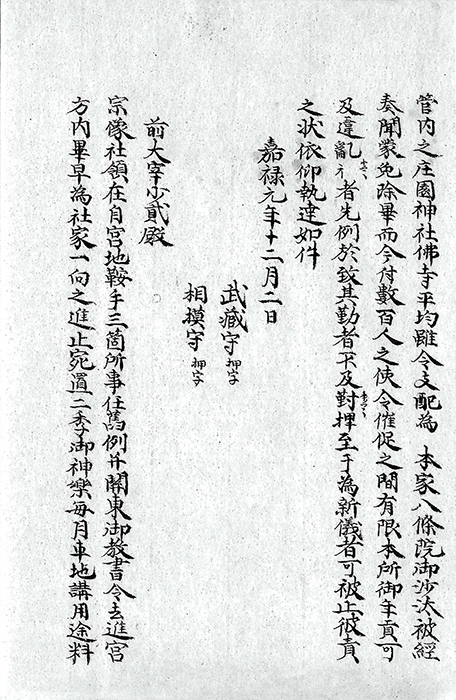 管内之庄園神社佛寺平均雖令支配為 本家八條院御沙汰被經
奏聞蒙免除畢而今付數百人之使令催促之間有限本所御年貢可
及違乱者先例於致其勤者不及對捍至于為新儀者可被止彼責
之状依仰執達如件
嘉禄元年十二月二日
武藏守 押字
相摸守 押字
前大宰少貳殿
宗像社領在自宮地鞍手三箇所事任舊例并關東御教書令去進宮
方内畢早為社家一向之進止宛置二季御神樂每月車地講用途料